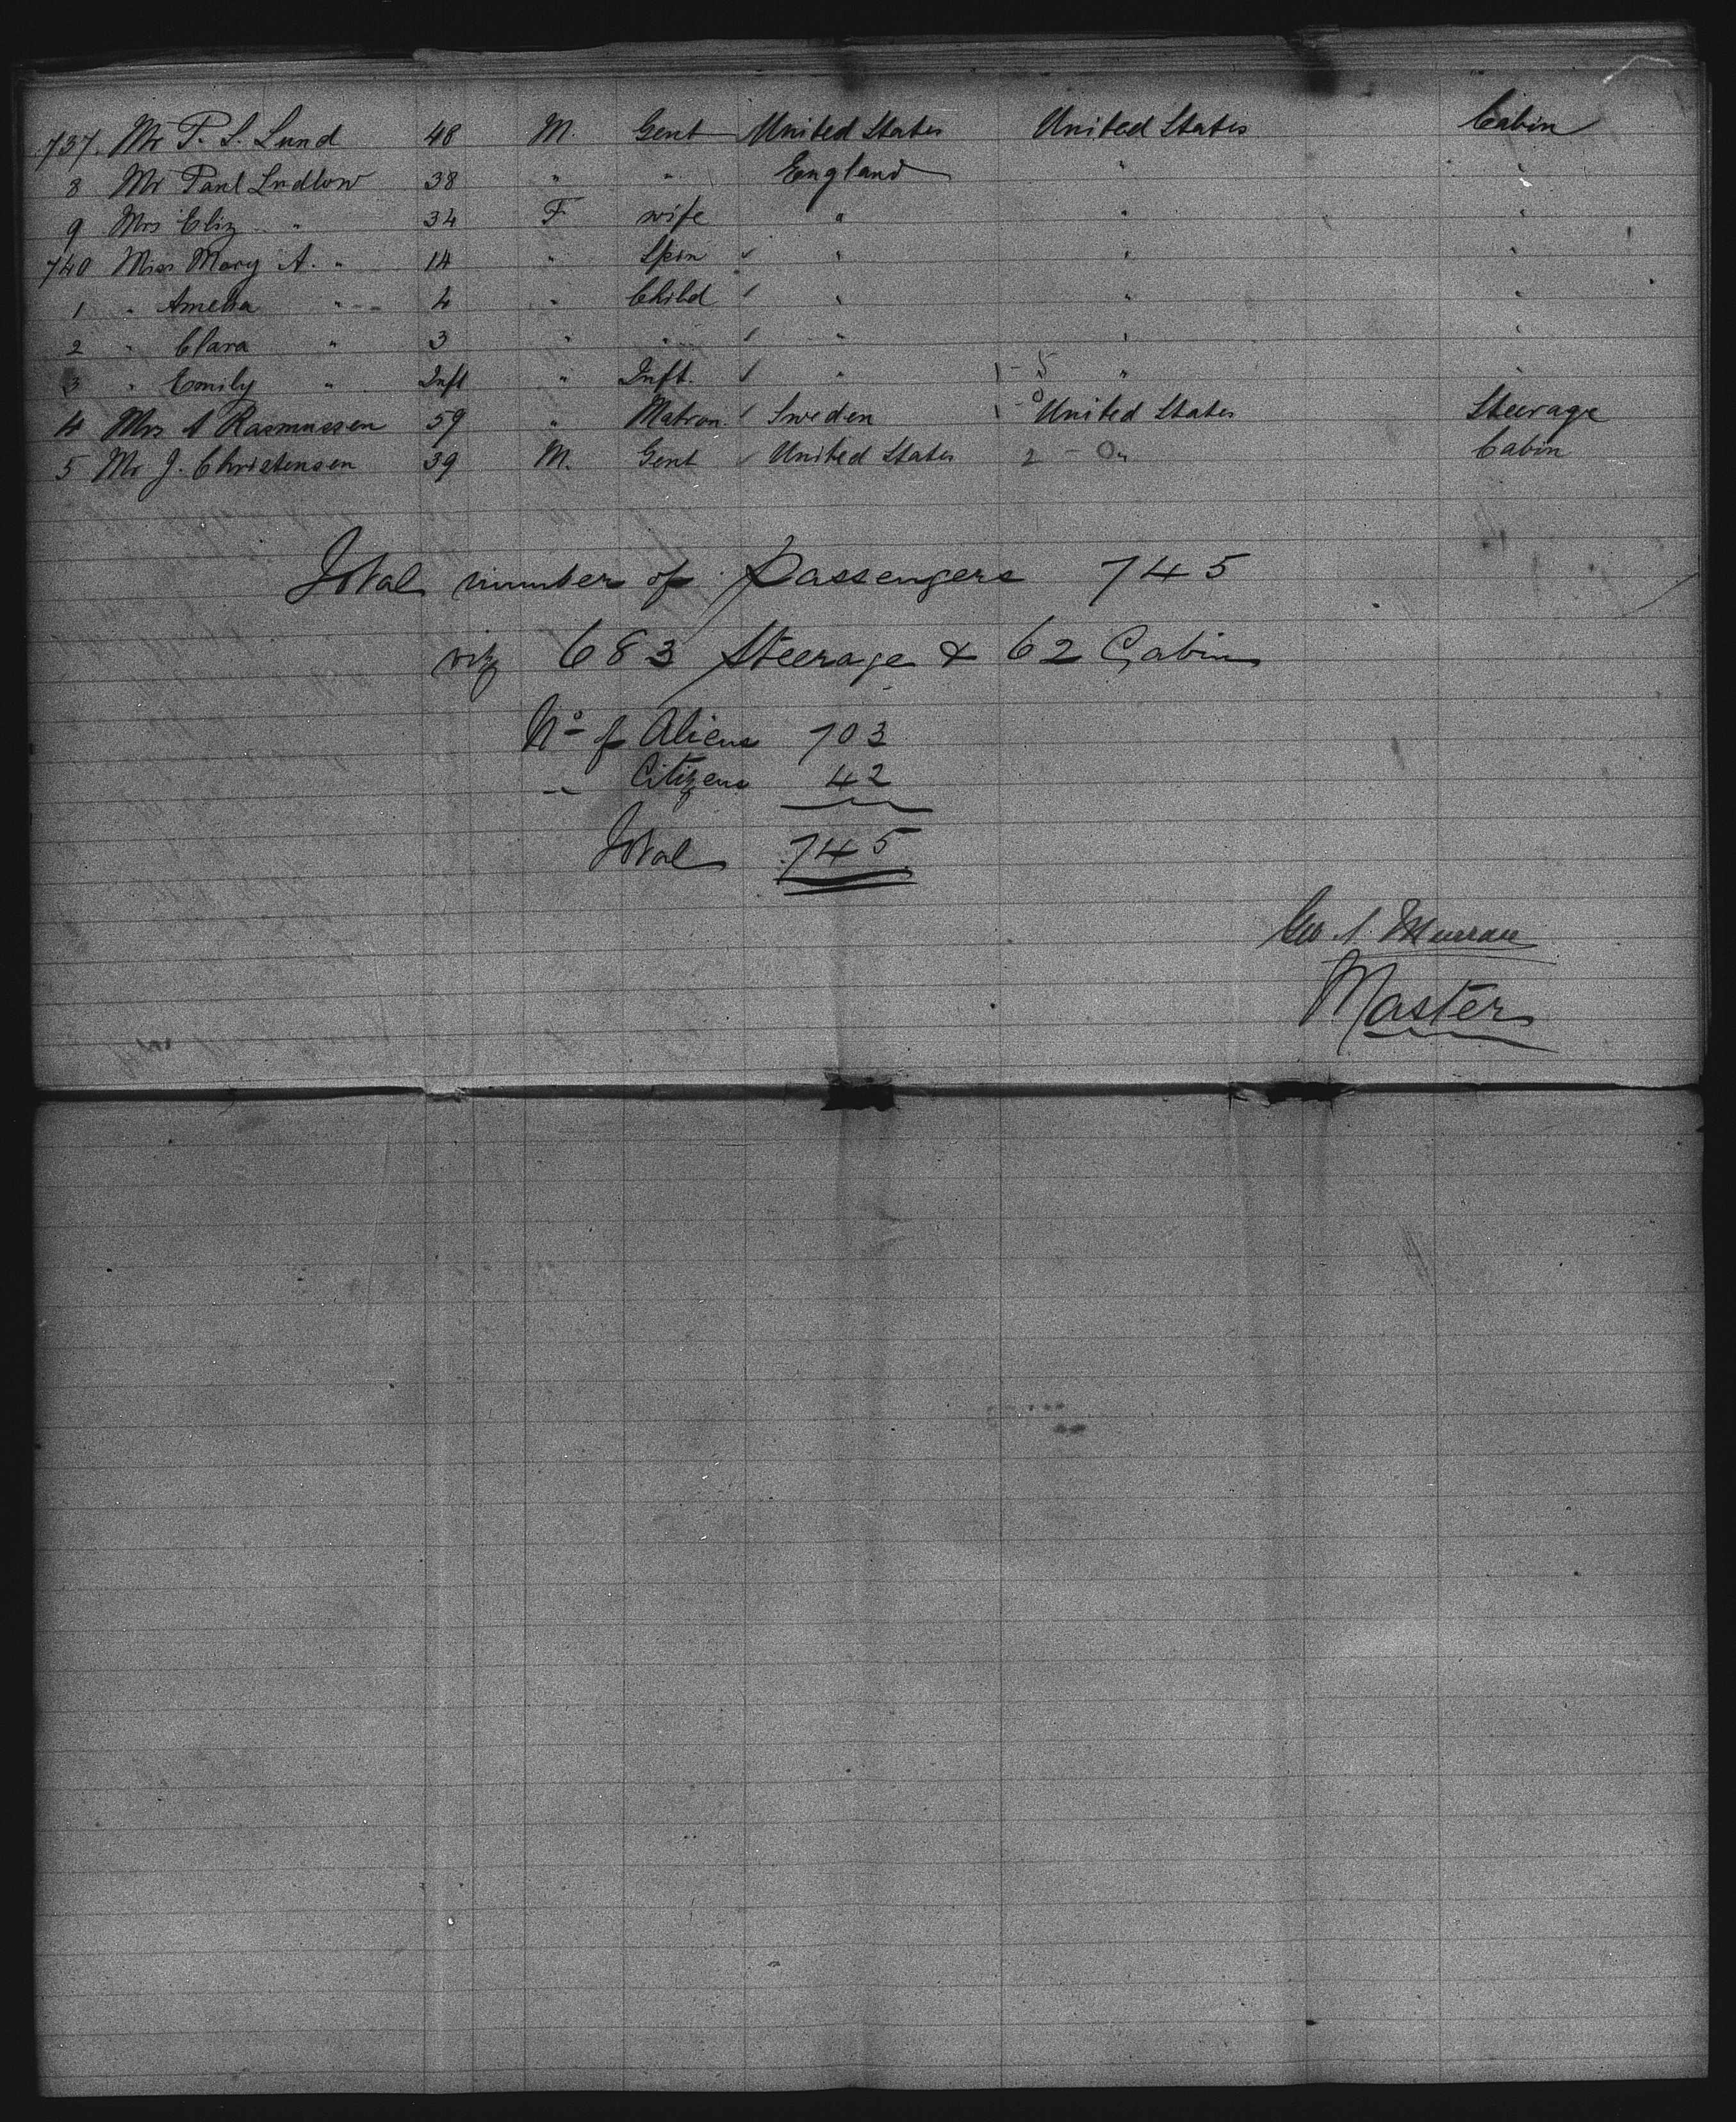 737. Mr P. S. Lund 48 M. Gent United States United States Cabin
8 Mr Paul Ludlow 38 " " England " "
9 Mrs Eliz " 34 F wife " " "
740 Miss Mary A. " 14 " Spin ✓ " " "
1 " Amelia " 4 " Child ✓ " " "
2 " Clara " 3 " " ✓ " " "
3 " Emily " Inft " Inft. ✓ " 1 - 5 " "
4 Mrs A Rasmussen 59 " Matron ✓ Sweden 1 - 0 United States Steerage
5 Mr J. Christensen 39 M. Gent ✓ United States 2 - 0 " Cabin
Total number of Passengers 745
viz 683 Steerage & 62 Cabin
No of Aliens 703
" Citizens 42
Total 745
Geo. A. Murray
Master